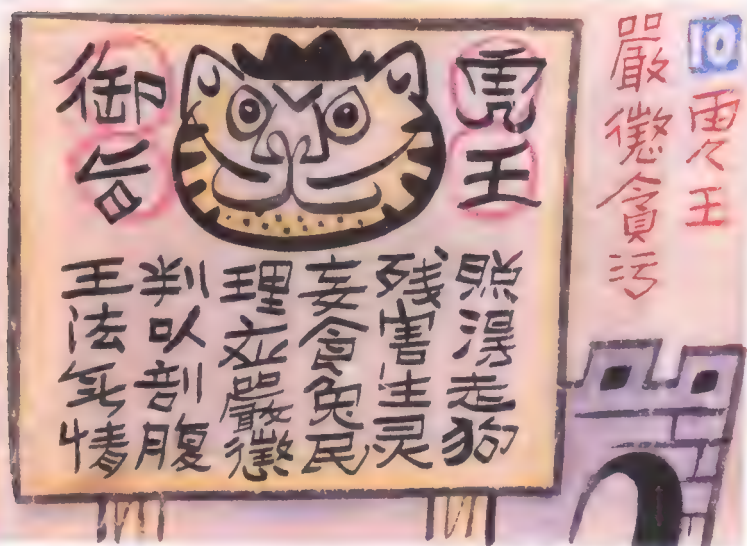 10 虎王
嚴懲貪污
虎王
御旨
照得走狗
残害生灵
妄食兔民
理应嚴懲
判以剖腹
王法無情